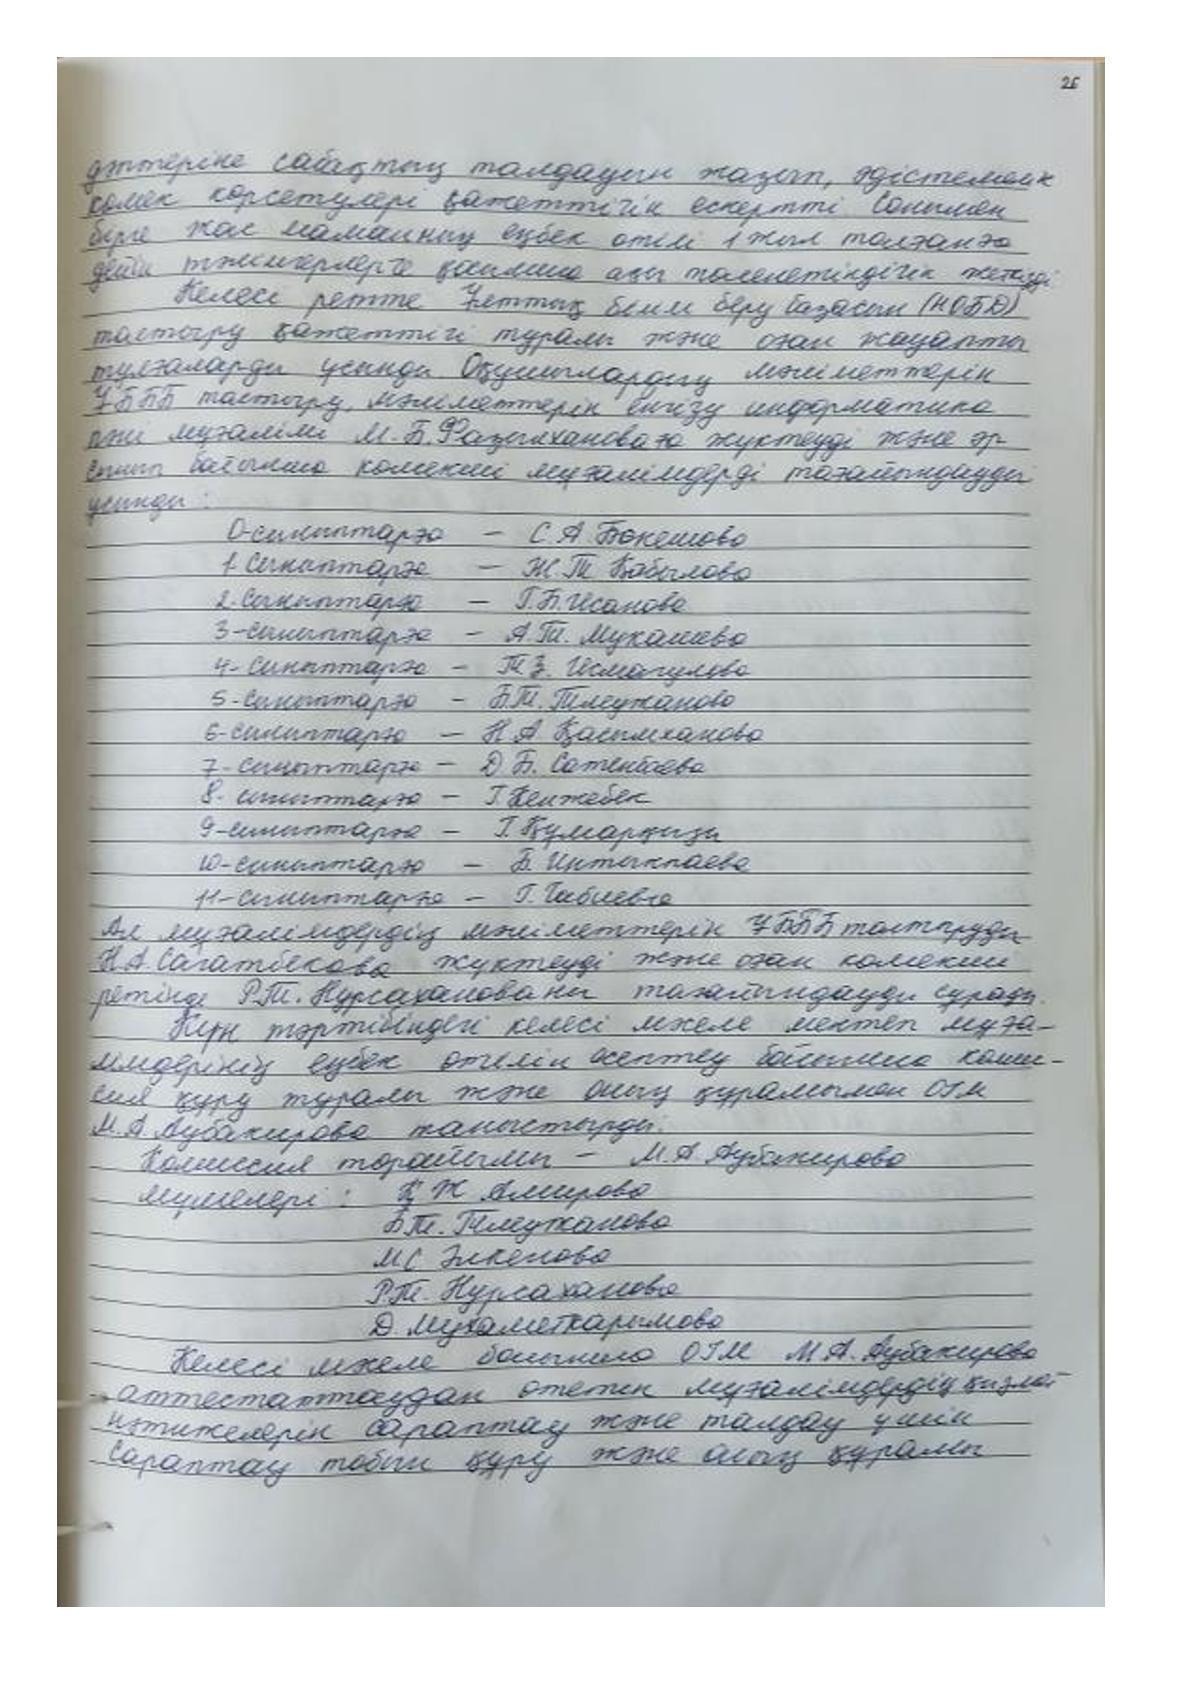 26
дәптеріне сабақтың талдауын жазып, әдістемелік
көмек көрсетулері қажеттігін ескертті. Сонымен
бірге жас маманның еңбек өтілі 1 жыл толғанға
дейін тәлімгерлерге қосымша ақы төленетіндігін жеткізді
Келесі ретте Ұлттық білім беру базасын (НОБД)
толтыру қажеттігі туралы және оған жауапты
тұлғаларды ұсынды. Оқушылардың мәліметтерін
ҰБББ толтыру, мәліметтерін енгізу информатика
пәні мұғалімі М.Б.Фазылхановаға жүктеуді және әр
сынып бойынша көмекші мұғалімдерді тағайындауды
ұсынды:
0-сыныптарға – С.А Бөкешова
1-сыныптарға – Ж.Т Қабылова
2-сыныптарға – Г.Б.Исанова
3-сыныптарға – А.Т. Мукашева
4-сыныптарға – Т.З. Исмагулова
5-сыныптарға – Б.Т. Тлеужанова
6-сыныптарға – Н А Қасымханова
7-сыныптарға – Д Б. Сатенбаева
8-сыныптарға – Г.Кенжебек
9-сыныптарға – Г.Құмарқызы
10-сыныптарға – Б. Интыкпаева
11-сыныптарға – Г. Габиева
Ал мұғалімдердің мәліметтерін ҰБББ толтыруды
Н.А.Сагатбекова жүктеуді және оған көмекші
ретінде Р.Т. Нурсаханованы тағайындауды сұрады.
Күн тәртібіндегі келесі мәселе мектеп мұға-
лімдерінің еңбек өтілін есептеу бойынша комис-
сия құру туралы және оның құрамымен ОІМ
М.А.Аубакирова таныстырды.
Комиссия төрайымы – М.А.Аубакирова
мүшелері: Қ Ж Амирова
Б.Т. Тлеужанова
М.С Әлкенова
Р.Т. Нурсаханова
Д. Мухаметкаримова
Келесі мәселе бойынша ОІМ М.А.Аубакирова
аттестаттаудан өтетін мұғалімдердің қызмет
нәтижелерін сараптау және талдау үшін
сараптау тобын құру және оның құрамы